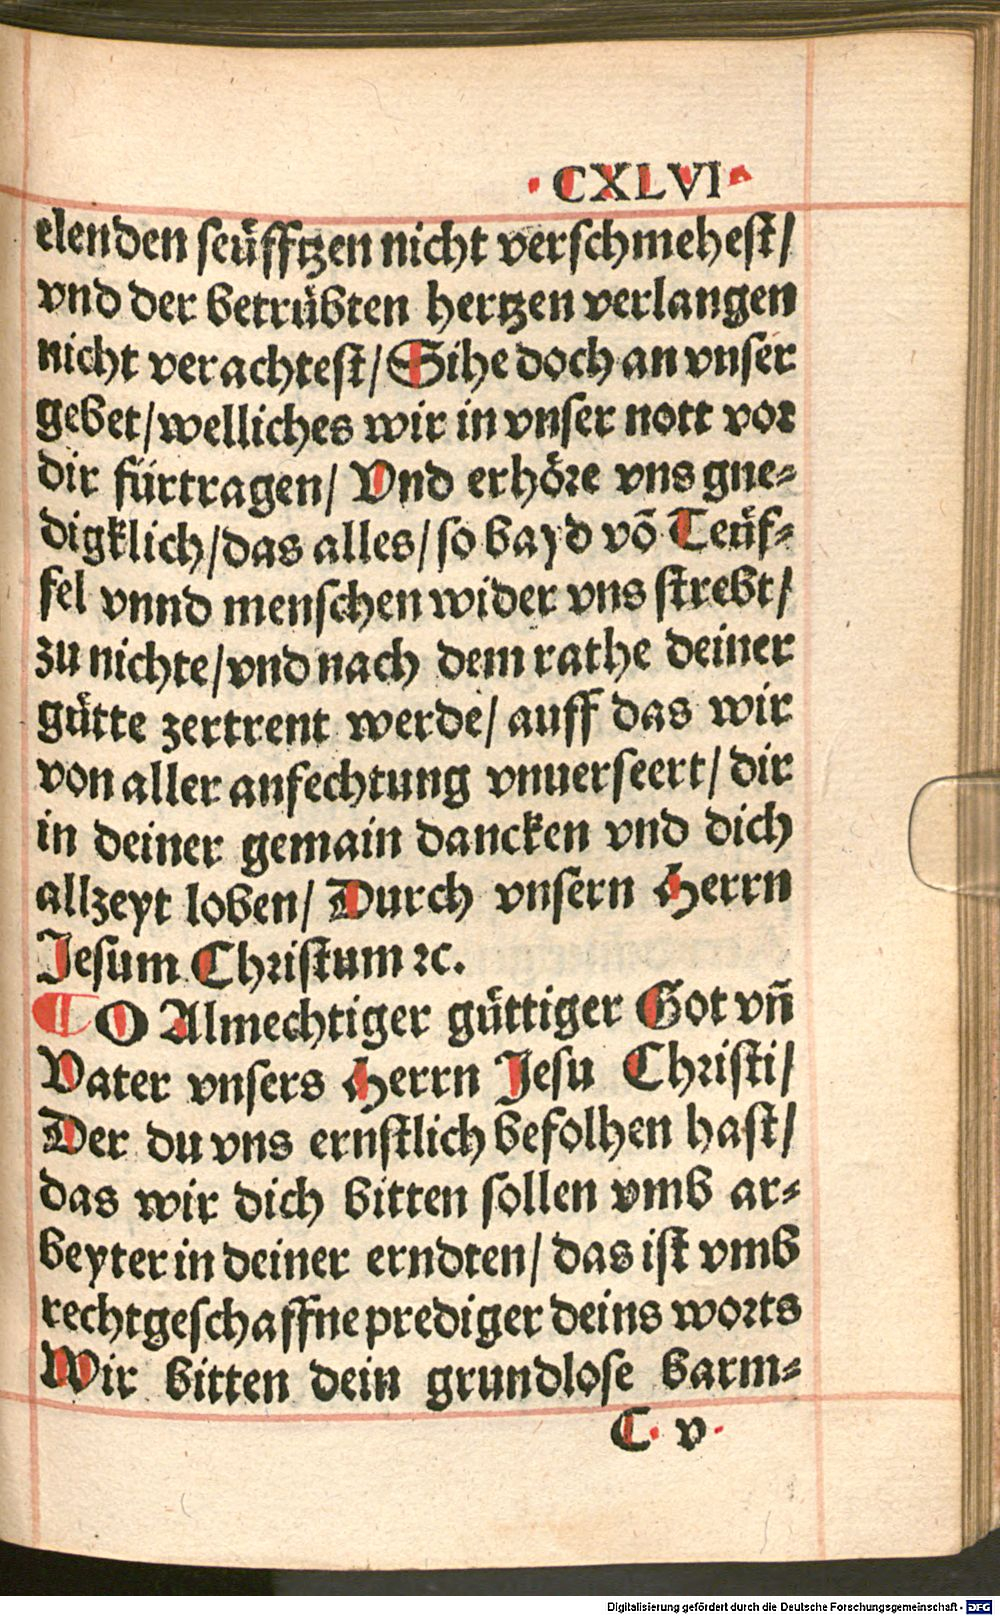 · CXLVI ·
elenden seüfftzen nicht verschmehest/
vnd der betrübten hertzen verlangen
nicht verachtest/ Sihe doch an vnser
gebet/ welliches wir in vnser nott vor
dir fürtragen/ Vnd erhöre vns gne-
digklich/ das alles/ so bayd võ Teüf-
fel vnnd menschen wider vns strebt/
zu nichte/ vnd nach dem rathe deiner
gütte zertrent werde/ auff das wir
von aller anfechtung vnuerseert/ dir
in deiner gemain dancken vnd dich
allzeyt loben/ Durch vnsern Herrn
Jesum Christum ꝛc.
¶ O Almechtiger güttiger Got vñ
Vater vnsers Herrn Jesu Christi/
Der du vns ernstlich befolhen hast/
das wir dich bitten sollen vmb ar-
beyter in deiner erndten/ das ist vmb
rechtgeschaffne prediger deins worts
Wir bitten dein grundlose barm-
C · v ·
Digitalisierung gefördert durch die Deutsche Forschungsgemeinschaft - DFG